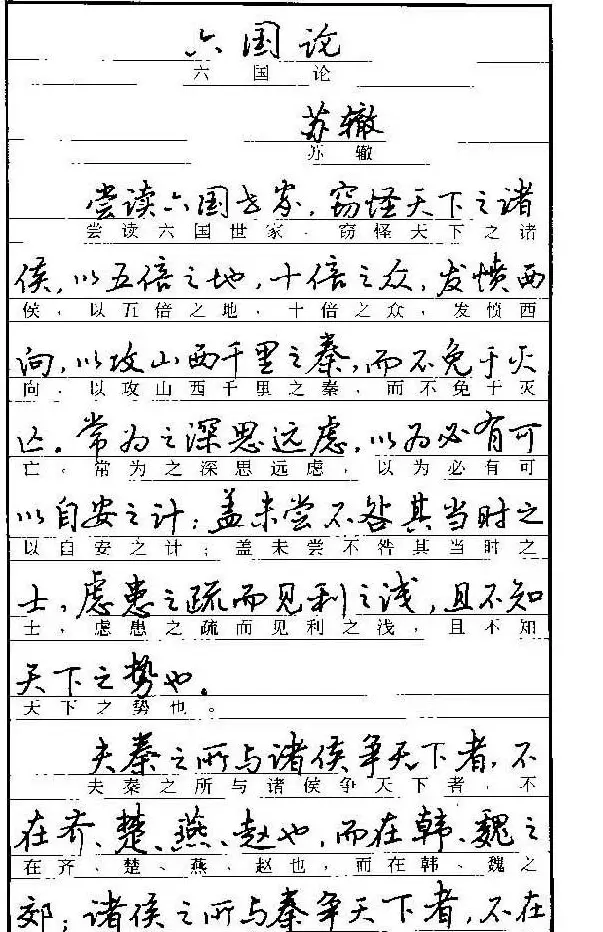 六国论
六国论
苏辙
苏辙
尝读六国世家，窃怪天下之诸
尝读六国世家，窃怪天下之诸
侯，以五倍之地，十倍之众，发愤西
侯，以五倍之地，十倍之众，发愤西
向，以攻山西千里之秦，而不免于灭
向，以攻山西千里之秦，而不免于灭
亡。常为之深思远虑，以为必有可
亡。常为之深思远虑，以为必有可
以自安之计；盖未尝不咎其当时之
以自安之计；盖未尝不咎其当时之
士，虑患之疏而见利之浅，且不知
士，虑患之疏而见利之浅，且不知
天下之势也。
天下之势也。
夫秦之所与诸侯争天下者，不
夫秦之所与诸侯争天下者，不
在齐、楚、燕、赵也，而在韩、魏之
在齐、楚、燕、赵也，而在韩、魏之
郊；诸侯之所与秦争天下者，不在